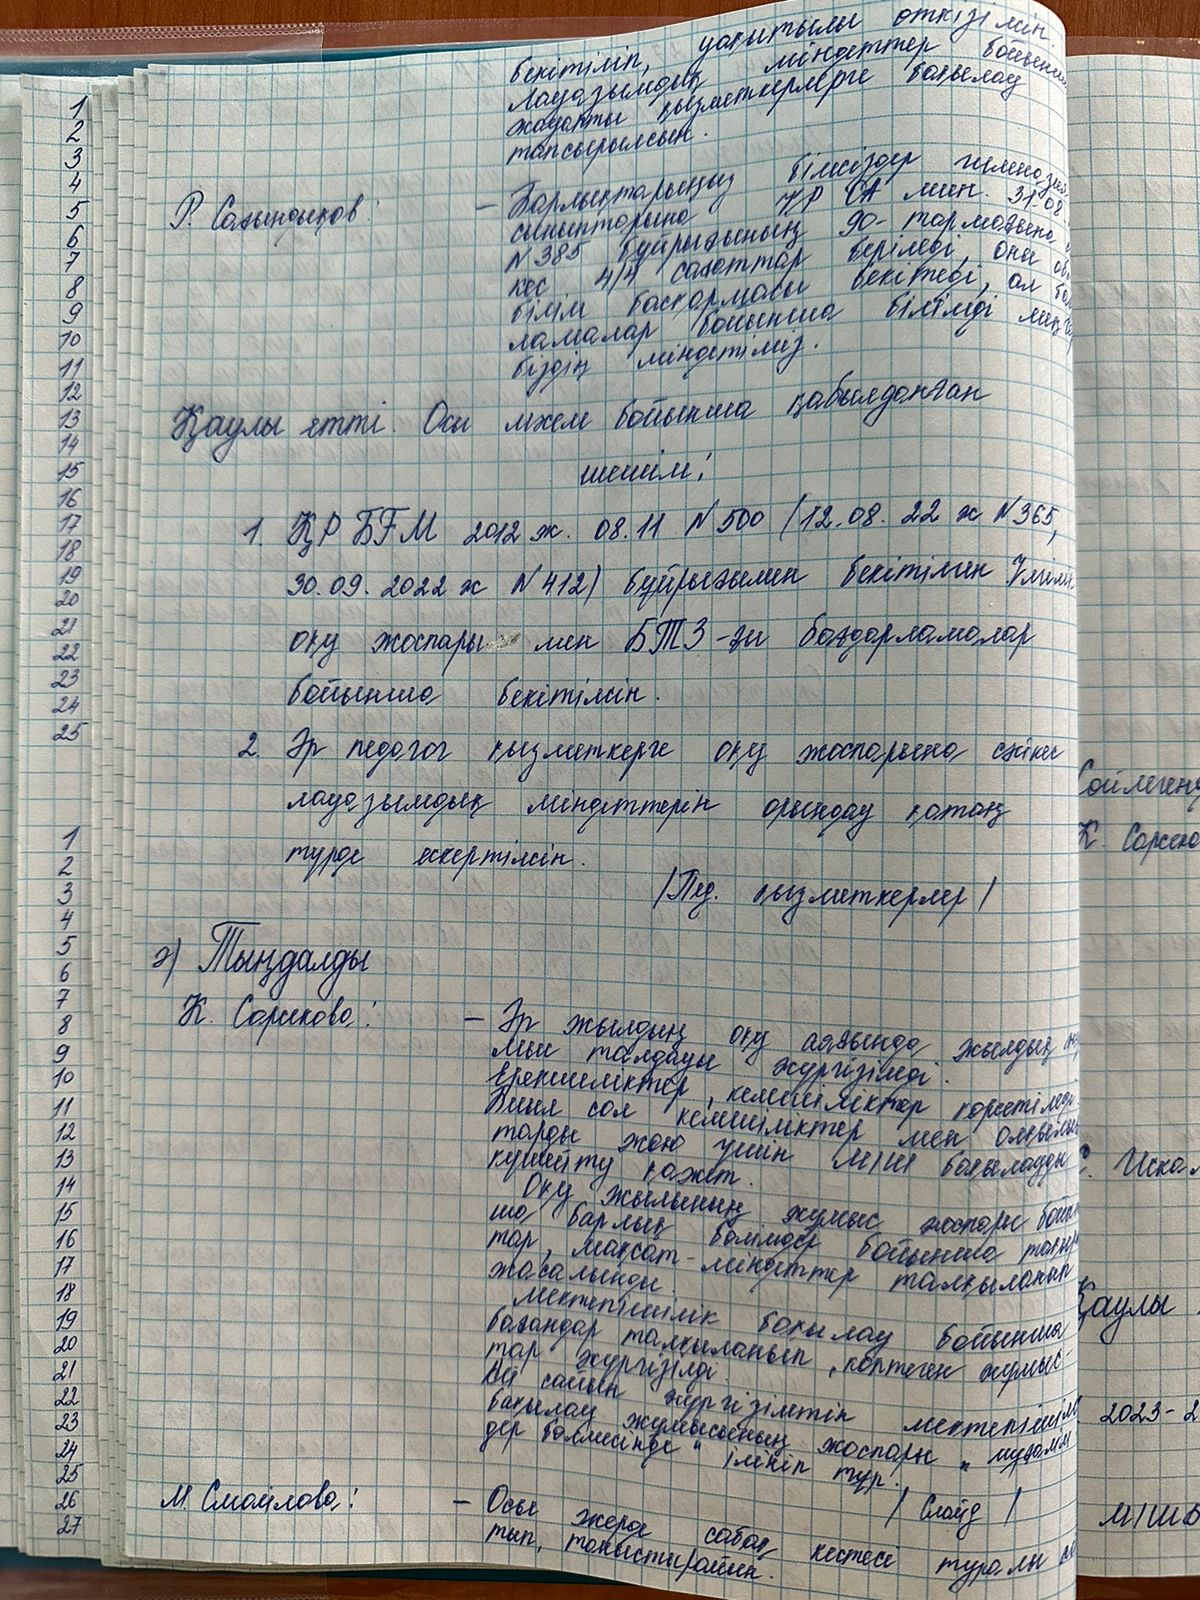 бекітіліп, уақытылы өткізілсін.
Лауазымдық міндеттер бойынша
жауапты қызметкерлерге бақылау
тапсырылсын.
Р. Сағындықов: – Барлықтарыңыз білесіздер гимназия
сыныптарына ҚР СА мин. 31.08.
N 385 бұйрығының 90-тармағына
кес 4/4 сағаттар беріледі, оны
білім басқармасы бекітеді, ал
ламалар бойынша білімді
біздің міндетіміз.
Қаулы етті. Осы мәселе бойынша қабылданған
шешім:
1. ҚР БҒМ 2012 ж. 08.11 N 500 (12.08.22 ж N 365,
30.09.2022 ж N 412) бұйрығымен бекітілген Үлгілік
оқу жоспары мен БТЗ-ғы бағдарламалар
бойынша бекітілсін.
2. Әр педагог қызметкерге оқу жоспарына сәйкес
лауазымдық міндеттерін орындау қатаң
түрде ескертілсін.
/Пед. қызметкерлер/
ә) Тыңдалды
К. Сарсекова: – Әр жылдың оқу аяғында жылдың
талдауы жүргізілді.
Ерекшеліктер, кемшіліктер көрсетіледі.
Биыл сол кемшіліктер мен олқылық
тарды жою үшін МІШ бақылауды
күшейту қажет.
Оқу жылының жұмыс жоспары бойын
ша барлық бөлімдер бойынша
тар, мақсат-міндеттер талқыланып
жасалынды.
Мектепішілік бақылау бойынша
бағандар талқыланып, көптеген жұмыс-
тар жүргізілді.
Ай сайын жүргізілетін мектепішілік
бақылау жұмысының жоспары "мұғалім
дер бөлмесінде" ілініп тұр.
/ Слайд /
М. Смаилова: – Осы жерде сабақ кестесі туралы
тып, таныстырамын.
Сөйлегенд
К. Сарсеко
Искал
Қаулы
2023-2
МІШБ